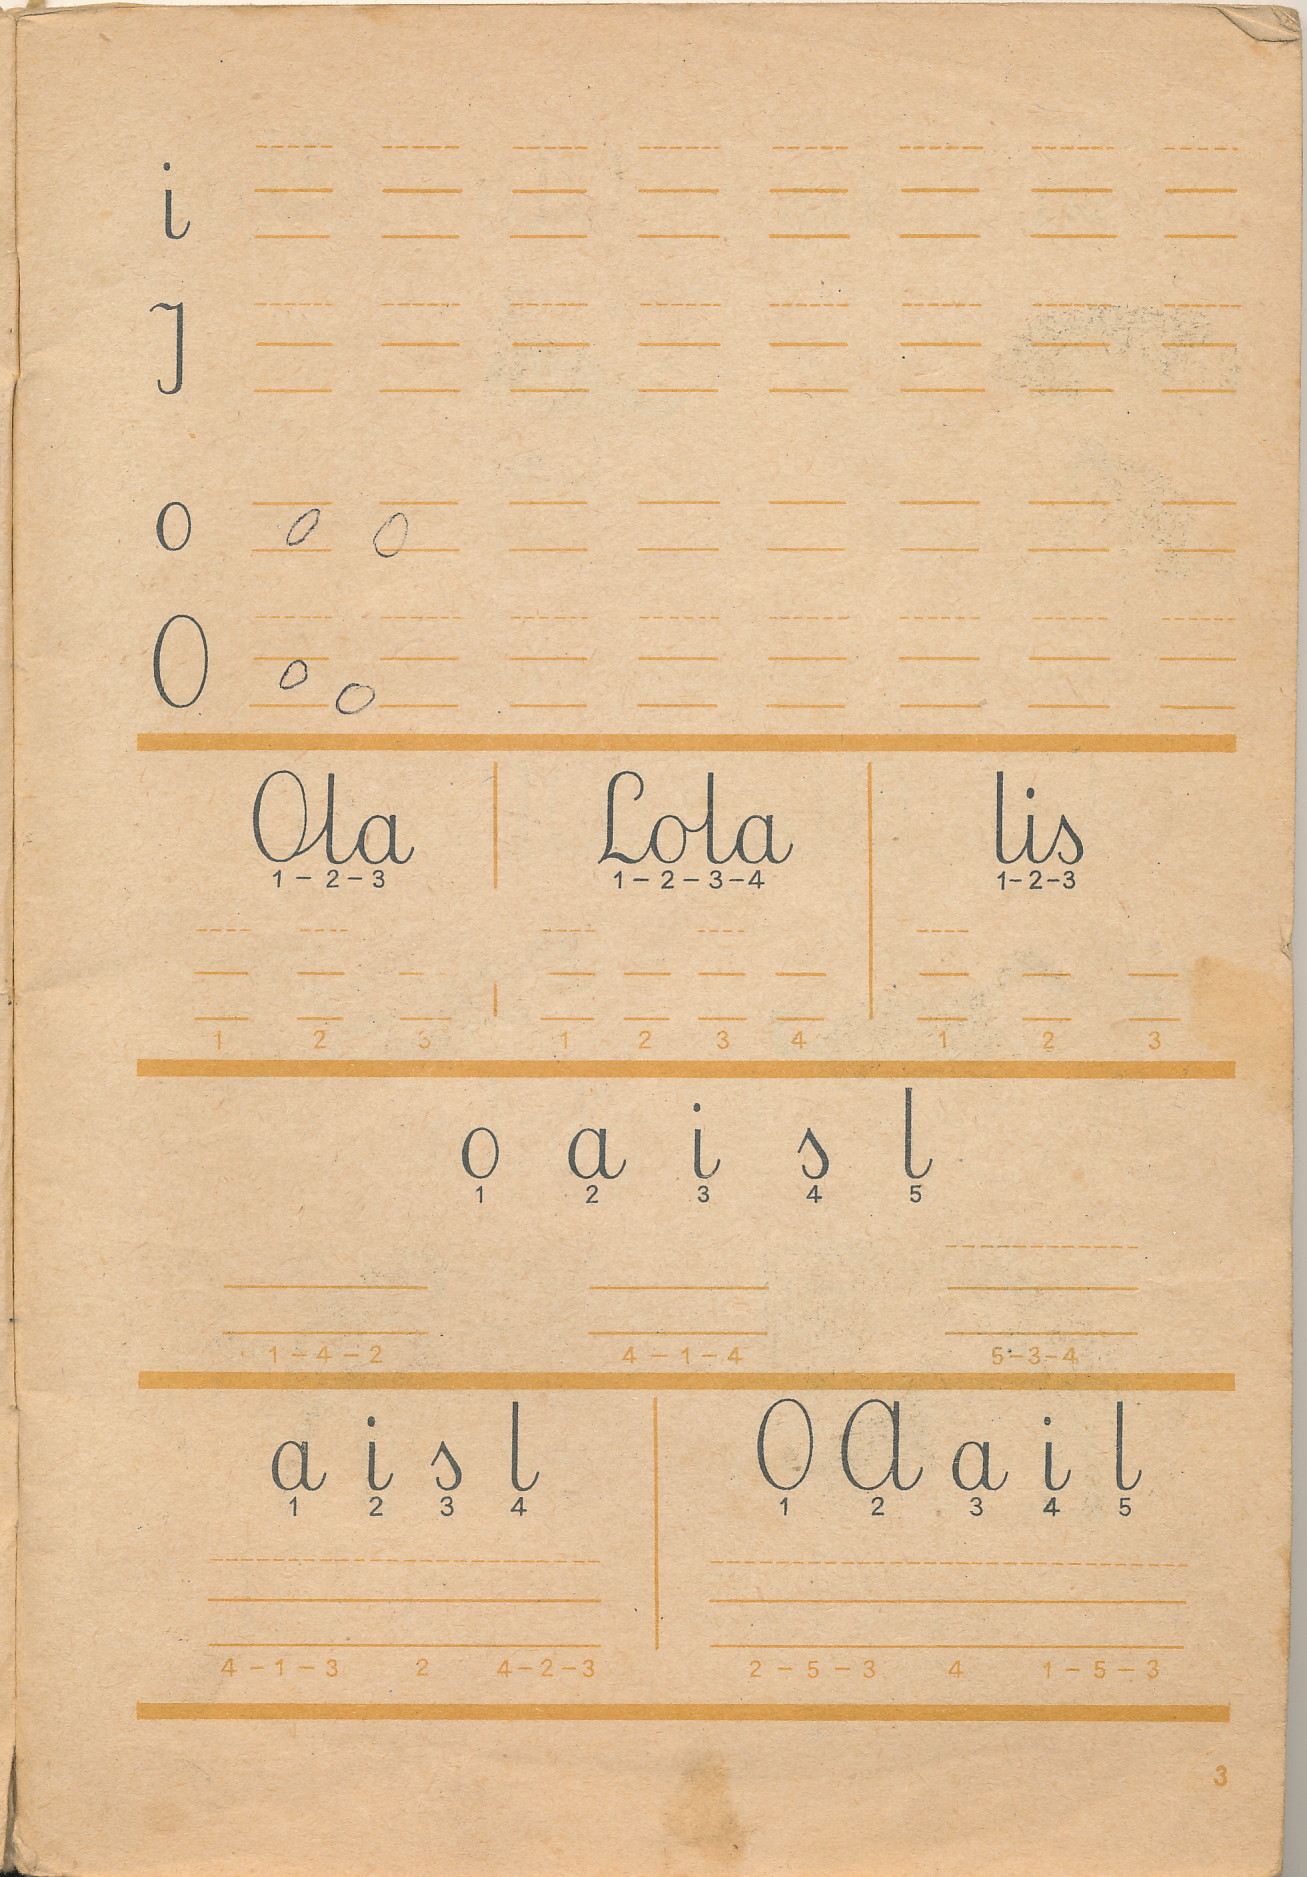 i
I
o o o
O o o
Ola Lola lis
1 – 2 – 3 1 – 2 – 3 – 4 1 – 2 – 3
1 2 3 1 2 3 4 1 2 3
o a i s l
1 2 3 4 5
1 – 4 – 2 4 – 1 – 4 5 – 3 – 4
a i s l O A a i l
1 2 3 4 1 2 3 4 5
4 – 1 – 3 2 4 – 2 – 3 2 – 5 – 3 4 1 – 5 – 3
3